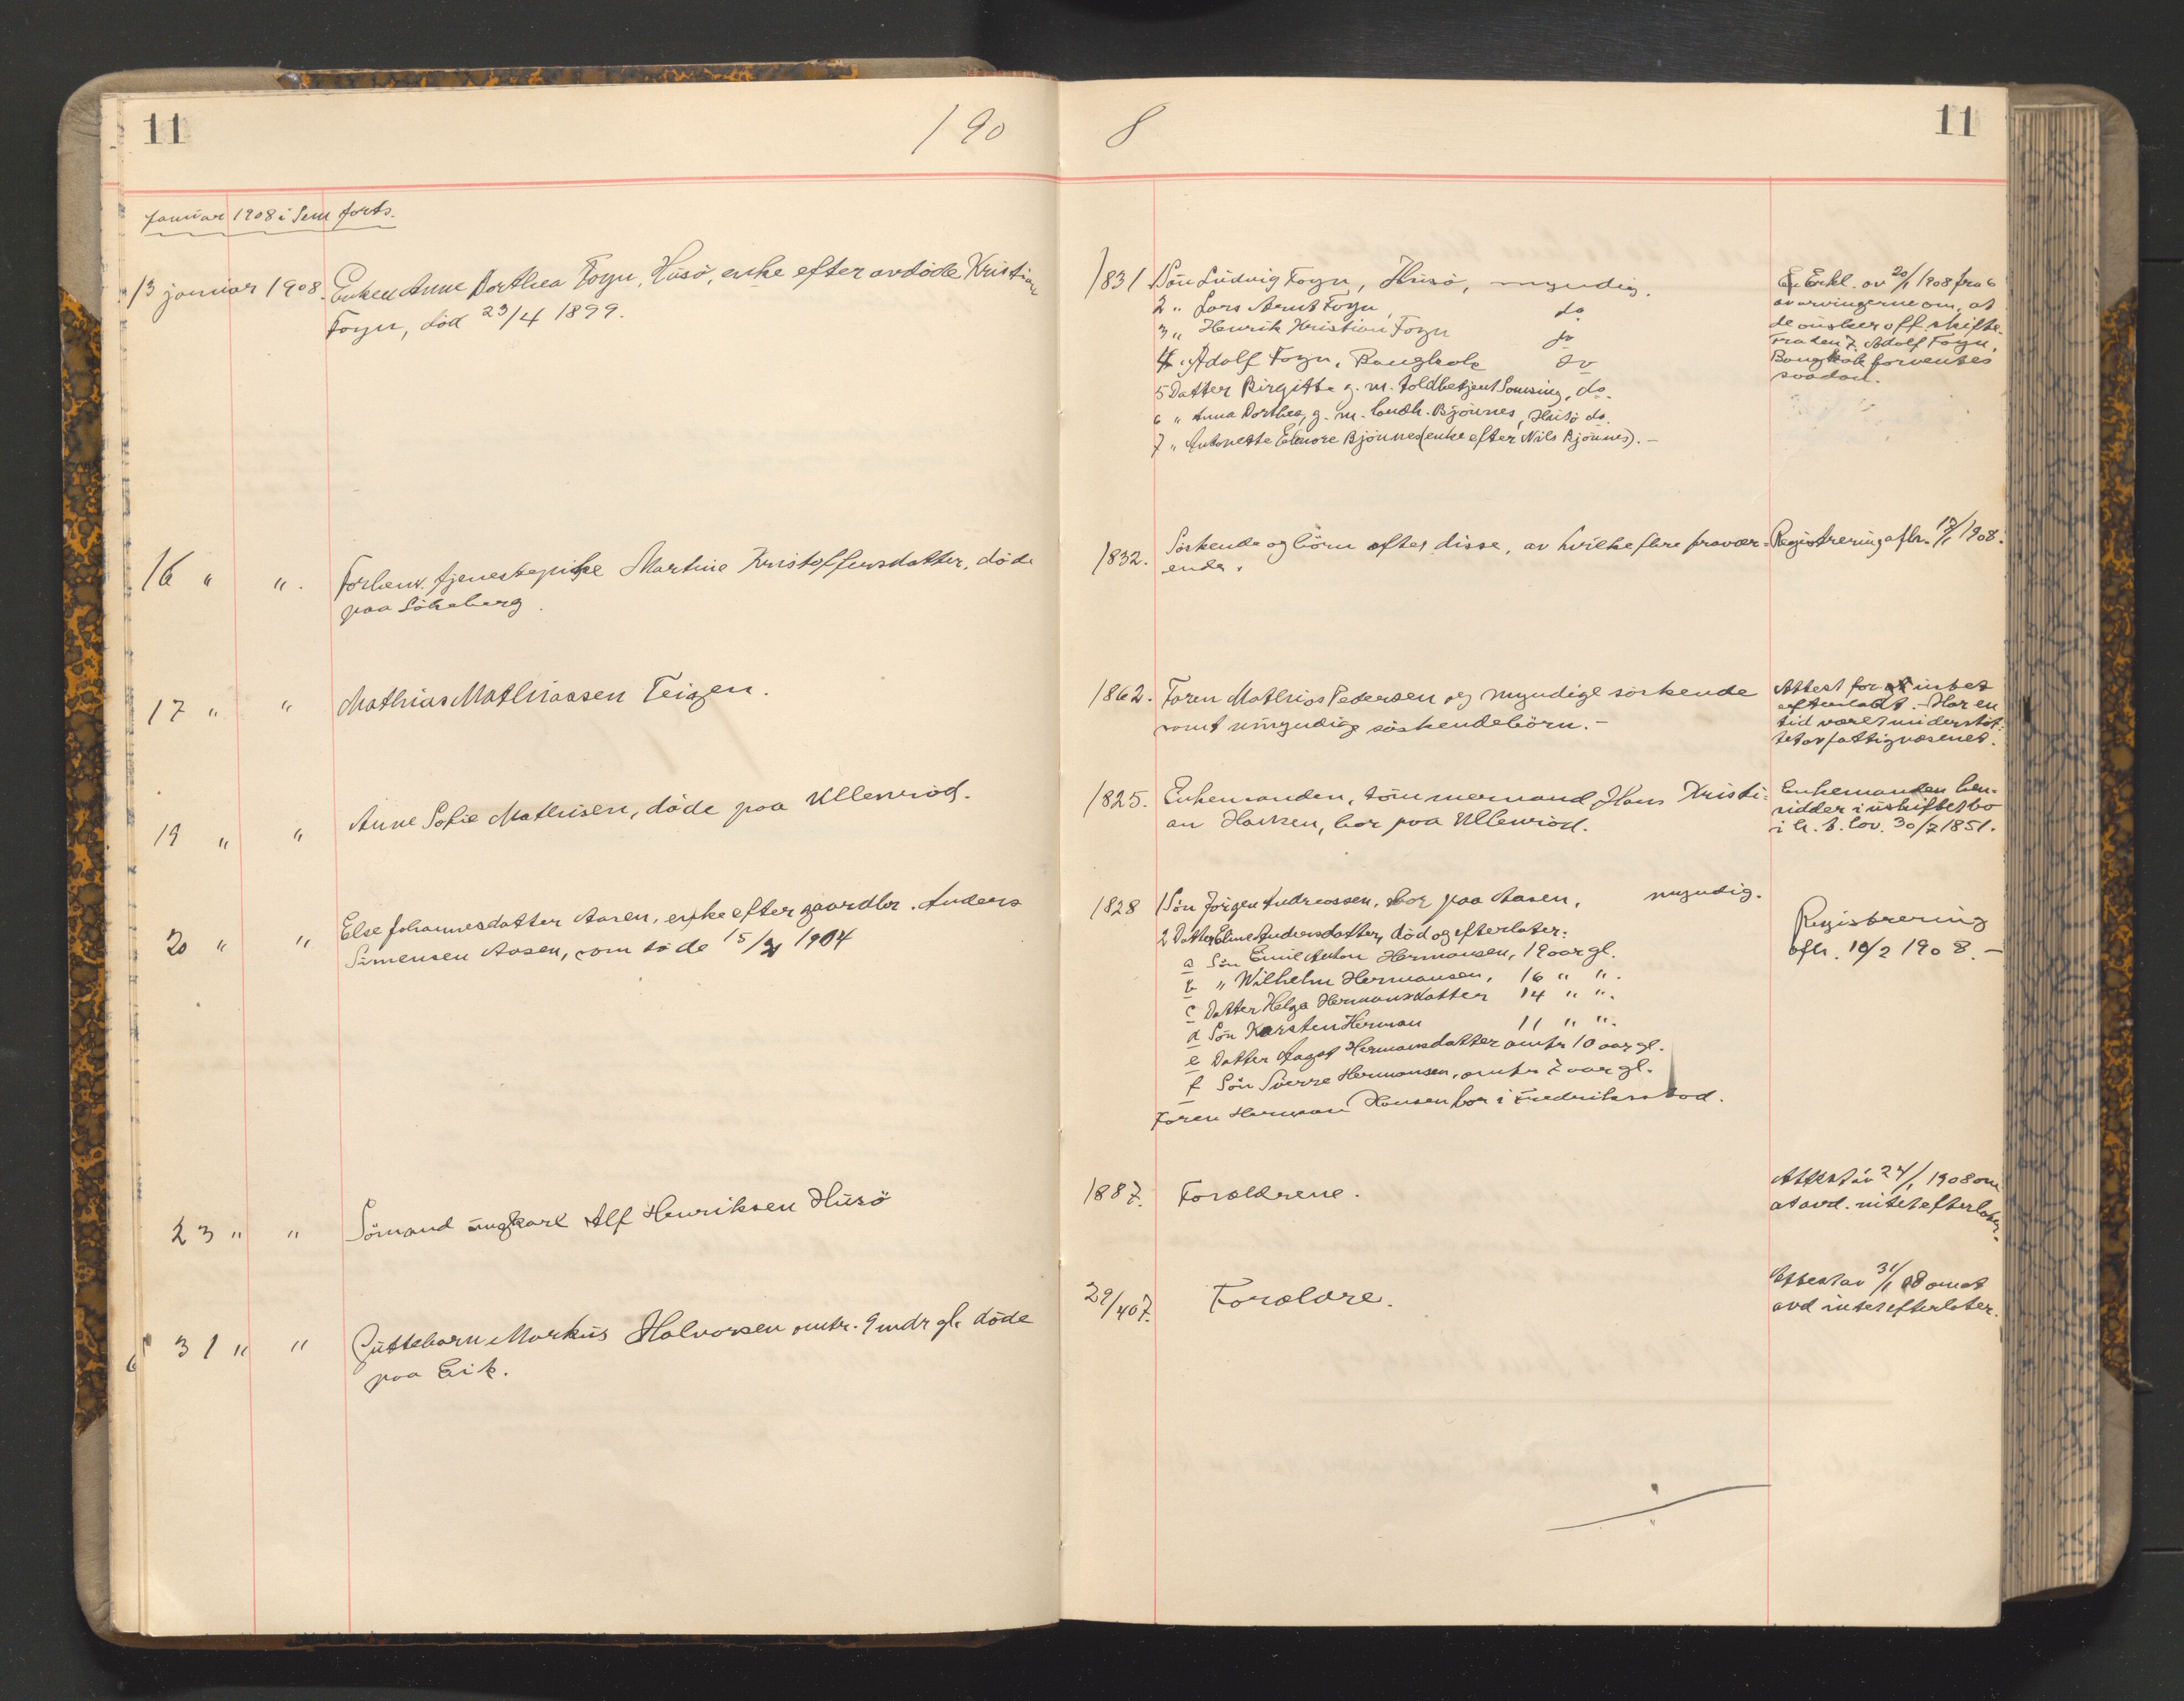 11
190
8
11
Januar 1908 i Sem forts.
13 januar 1908. Enken Anne Dorthea Foyn, Husö, enke efter avdöde Kristian
Foyn, död 23/4 1899.
1831 1 Sön Ludvig Foyn, Husö, myndig.
2 " Lars Arnt Foyn, do
3 " Henrik Kristian Foyn do
4 " Adolf Foyn, Bangkok do
5 Datter Birgitte g. m. toldbetjent Sonsing, do.
6 " Anna Dorthea, g. m. landh. Bjönnes, Husö do.
7 " Antonette Elenore Bjönnes (enke efter Nils Bjönnes). -
Erkl. av 20/1 1908 fra 6
av arvingerne om, at
de önsker off. skifte.
Fra den 7. Adolf Foyn,
Bangkok forventes
saadan.
16 " ". Forhenv. tjenestepike Martine Kristoffersdatter, döde
paa Sökeberg.
1832. Söskende og börn efter disse, av hvilke flere fravær=
ende.
Registrering afh. 17/1 1908.
17 " " Mathias Mathiassen Teigen.
1862. Faren Mathias Pedersen og myndige söskende
samt umyndig söskendebörn. -
Attest for at intet
efterlatt. - Har en
tid været understöt-
tet av fattigvæsenet.
19 " " Anne Sofie Mathisen, döde paa Ullenröd.
1825. Enkemanden, tömmermand Hans Kristi=
an Hansen, bor paa Ullenröd.
Enkemanden hen-
sidder i uskiftet bo
i h. t. lov. 30/7 1851.
20 " " Else Johannesdatter Aasen, enke efter gaardbr. Anders
Simensen Aasen, som döde 15/4 1904
1828 1 Sön Jörgen Andreassen, bor paa Aasen, myndig.
2 Datter Eline Andersdatter, död og efterlater:
a Sön Emil Anton Hermansen, 19 aar gl.
b " Wilhelm Hermansen, 16 " ".
c Datter Helga Hermansdatter 14 " ".
d Sön Karsten Herman 11 " ".
e Datter Aagot Hermansdatter omtr 10 aar gl.
f Sön Sverre Hermansen, omtr 7 aar gl.
Faren Herman Hansen bor i Fredriksstad.
Registrering
afh. 10/2 1908. -
23 " " Sömand ungkarl Alf Henriksen Husö
1887. Forældrene.
Attest av 24/1 1908 om
at avd. intet efterlater.
31 " " Guttebarn Markus Halvorsen omtr. 9 mdr gl. döde
paa Eik.
29/4 07. Forældre.
Attest av 31/1 08 om at
avd intet efterlater.